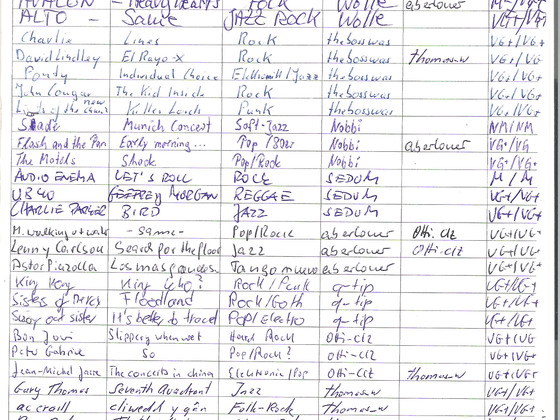 AVALON - Heavy Hearts FOLK Wolle aberlouer
ALTO - Same JAZZ ROCK Wolle VG+/VG+
Charlie Lines Rock thebosswas VG+/VG+
David Lindley El Rayo-X Rock thebosswas thomas-w VG+/VG+
Ponty Individual Choice /Jazz thebosswas VG+/VG+
John Cougar The Kid Inside Rock thebosswas VG+/VG+
Lords of the new church Killer Lords Punk thebosswas VG+/VG+
Munich Concert Soft-Jazz Nobbi NM/NM
Flash and the Pan Early morning... Pop/80er Nobbi aberlouer VG+/VG+
The Motels Shock Pop/Rock Nobbi VG+/VG+
AUDIO ENEMA LET'S ROLL ROCK SEDUM M/M
UB 40 GEFFREY MORGAN REGGAE SEDUM VG+/VG+
CHARLIE PARKER BIRD JAZZ SEDUM VG+/VG+
M. walking o+ water - Same - Pop/Rock aberlouer Otti-Clz VG+/VG+
Lenny Carlson Search for the floor Jazz aberlouer Otti-Clz VG+/VG+
Astor Piazzolla Las mas grandes Tango aberlouer VG+/VG+
King Kong King who? Rock/Punk q-tip VG+/VG+
Sisters of Mercy Floodland Rock/Goth q-tip VG+/VG+
Swing out sister It's better to travel Pop/Electro q-tip VG+/VG+
Bon Jovi Slippery when wet Hard Rock Otti-Clz VG+/VG+
Peter Gabriel So Pop/Rock? Otti-Clz VG+/VG+
Jean-Michel Jarre The concerts in china Electronic/Pop Otti-Clz thomas-w VG+/VG+
Gary Thomas Seventh Quadrant Jazz thomas-w VG+/VG+
ac crail cliwedd y gân Folk-Rock thomas-w VG+/VG+